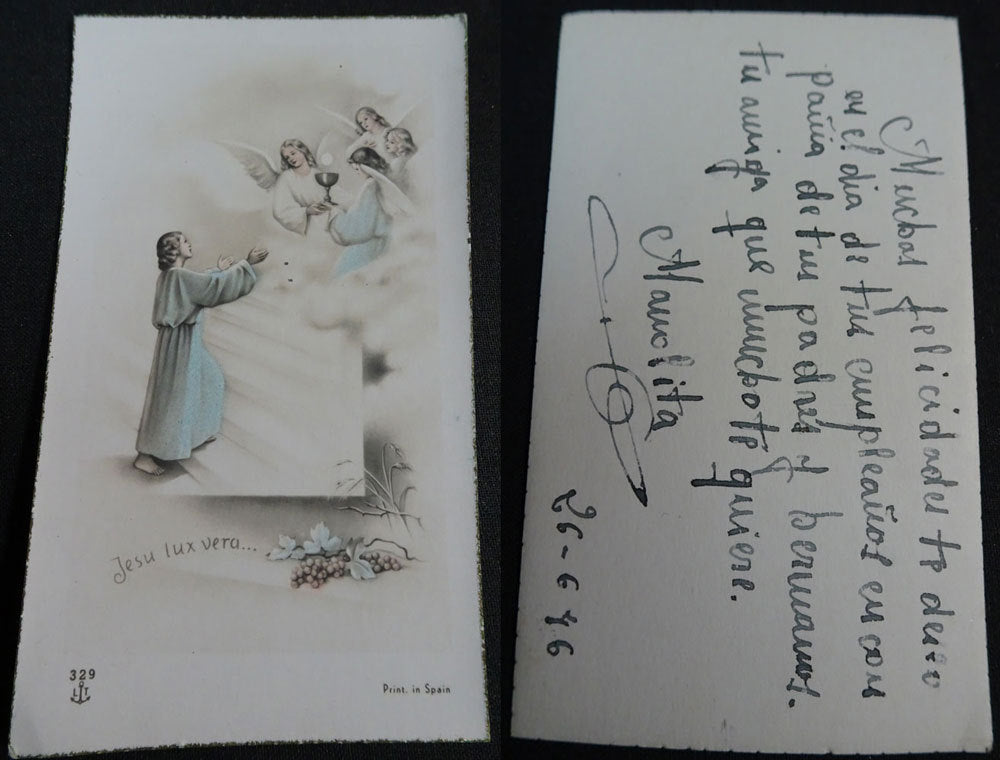 Jesu lux vera...
329
L T
Print. in Spain
Muchas felicidades te deseo
en el dia de tus cumpleaños en com
pañia de tus padres y hermanos.
tu amiga que mucho te quiere.
Manolita
26-6-46